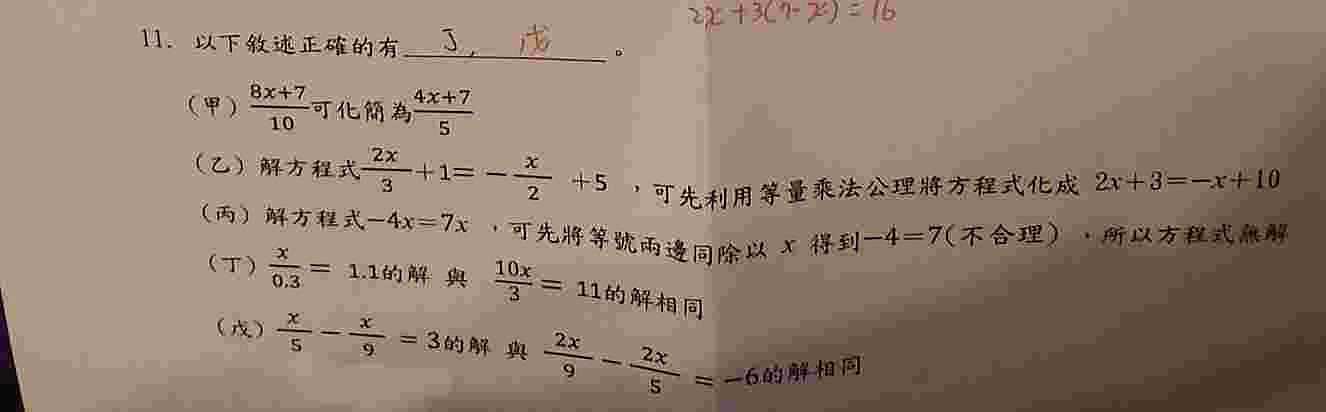 2x+3(7-x)=16
11. 以下敘述正確的有 丁, 戊 。
(甲) 8x+7/10 可化簡為 4x+7/5
(乙) 解方程式 2x/3 +1= - x/2 +5 ,可先利用等量乘法公理將方程式化成 2x+3=-x+10
(丙) 解方程式-4x=7x ,可先將等號兩邊同除以 x 得到-4=7(不合理) ,所以方程式無解
(丁) x/0.3 = 1.1的解 與 10x/3 = 11的解相同
(戊) x/5 - x/9 = 3的解 與 2x/9 - 2x/5 = -6的解相同